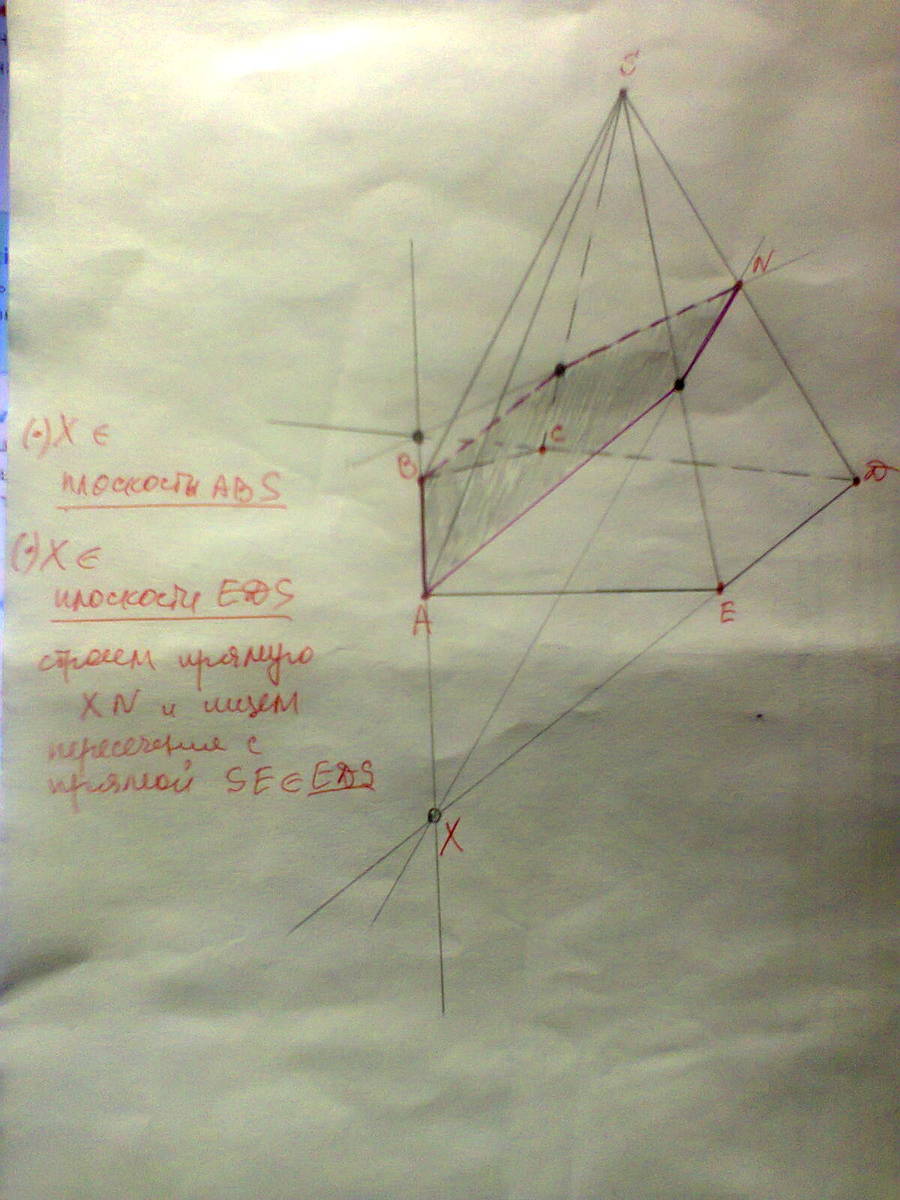 (•)X ∈
плоскости ABS
(•)X ∈
плоскости EDS
строем прямую
XN и ищем
пересечения с
прямой SE ∈ EDS
S
N
B
C
D
A
E
X